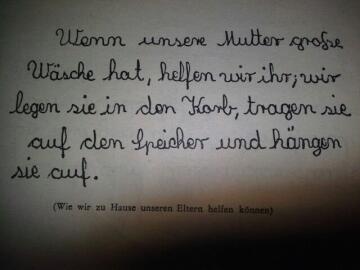 Wenn unsere Mutter große
Wäsche hat, helfen wir ihr; wir
legen sie in den Korb, tragen sie
auf den Speicher und hängen
sie auf.
(Wie wir zu Hause unseren Eltern helfen können)